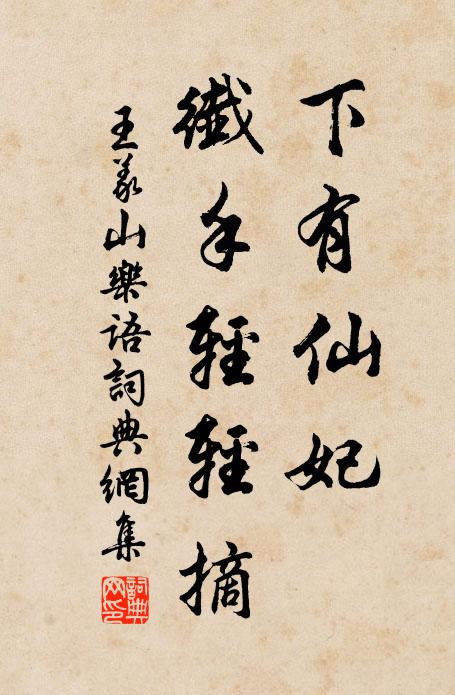 下有仙妃
纖手輕輕摘
王義山樂語詞典網集
詞典網印